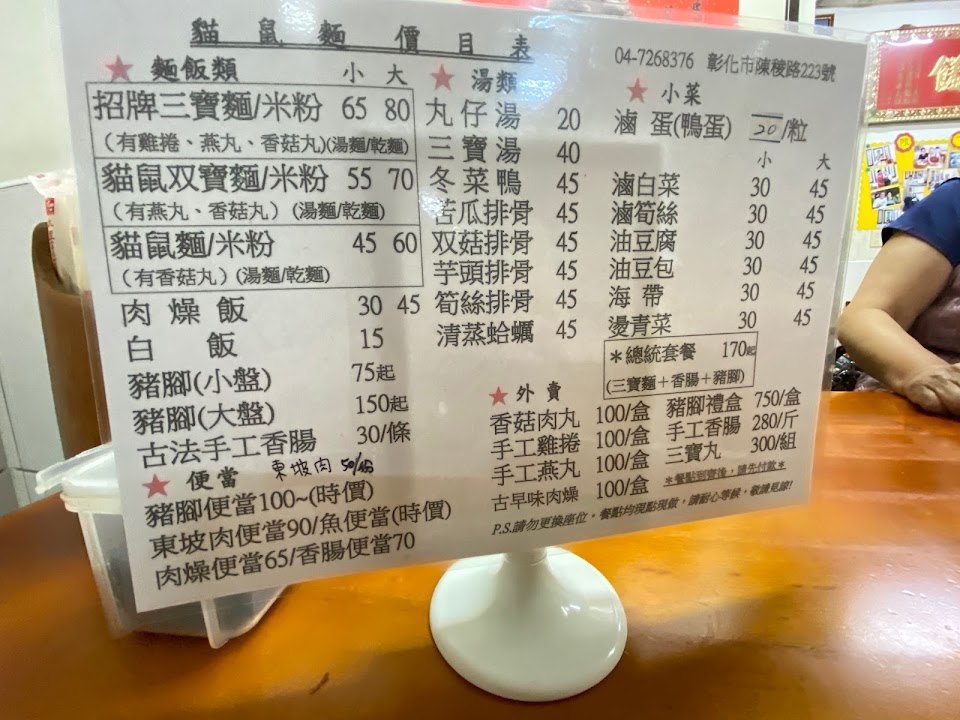 貓鼠麵價目表
04-7268376 彰化市陳稜路223號
★麵飯類 小 大
招牌三寶麵/米粉 65 80
(有雞捲、燕丸、香菇丸)(湯麵/乾麵)
貓鼠双寶麵/米粉 55 70
(有燕丸、香菇丸)(湯麵/乾麵)
貓鼠麵/米粉 45 60
(有香菇丸)(湯麵/乾麵)
肉燥飯 30 45
白飯 15
豬腳(小盤) 75起
豬腳(大盤) 150起
古法手工香腸 30/條
東坡肉 50/份
★便當
豬腳便當100~(時價)
東坡肉便當90/魚便當(時價)
肉燥便當65/香腸便當70
★湯類
丸仔湯 20
三寶湯 40
冬菜鴨 45
苦瓜排骨 45
双菇排骨 45
芋頭排骨 45
筍絲排骨 45
清蒸蛤蠣 45
★小菜
滷蛋(鴨蛋) 20/粒
小 大
滷白菜 30 45
滷筍絲 30 45
油豆腐 30 45
油豆包 30 45
海帶 30 45
燙青菜 30 45
*總統套餐 170起
(三寶麵+香腸+豬腳)
★外賣
香菇肉丸 100/盒 豬腳禮盒 750/盒
手工雞捲 100/盒 手工香腸 280/斤
手工燕丸 100/盒 三寶丸 300/組
古早味肉燥 100/盒 *餐點到齊後,請先付款*
P.S.請勿更換座位。餐點均現點現做,請耐心等候,敬請見諒!